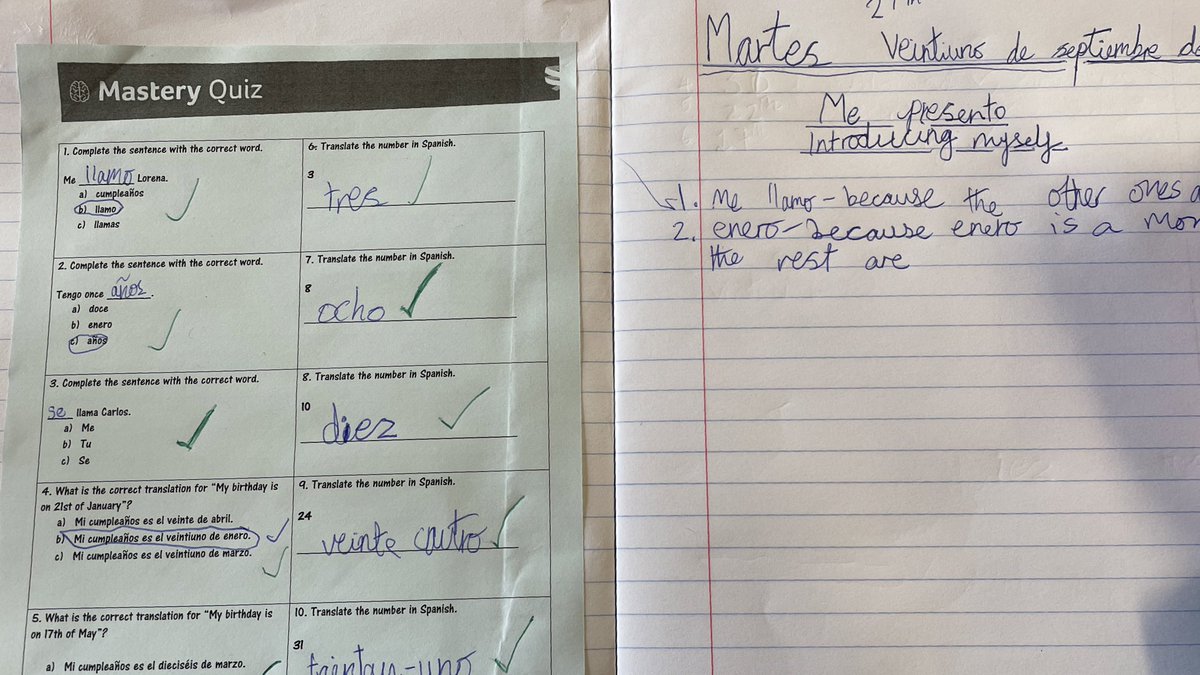 Mastery Quiz
1. Complete the sentence with the correct word.
Me llamo Lorena.
a) cumpleaños
b) llamo
c) llamas
2. Complete the sentence with the correct word.
Tengo once años.
a) doce
b) enero
c) años
3. Complete the sentence with the correct word.
se llama Carlos.
a) Me
b) Tu
c) Se
4. What is the correct translation for "My birthday is
on 21st of January"?
a) Mi cumpleaños es el veinte de abril.
b) Mi cumpleaños es el veintiuno de enero.
c) Mi cumpleaños es el veintiuno de marzo.
5. What is the correct translation for "My birthday is
on 17th of May"?
a) Mi cumpleaños es el dieciséis de marzo.
6. Translate the number in Spanish.
3
tres
7. Translate the number in Spanish.
8
ocho
8. Translate the number in Spanish.
10
diez
9. Translate the number in Spanish.
24
veinte cautro
10. Translate the number in Spanish.
31
Martes Veintiuno de septiembre de
Me presento
Introducing myself
1. Me llamo - because the other ones
2. enero - because enero is a
the rest are